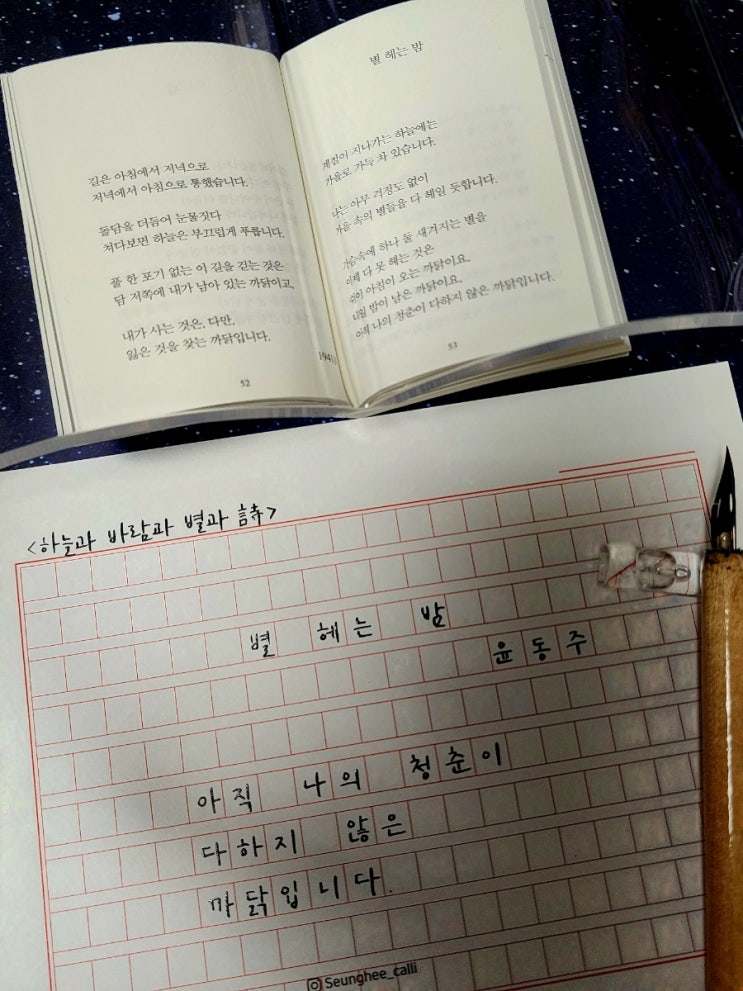 길은 아침에서 저녁으로
저녁에서 아침으로 통했습니다.
돌담을 더듬어 눈물짓다
쳐다보면 하늘은 부끄럽게 푸릅니다.
풀 한 포기 없는 이 길을 걷는 것은
담 저쪽에 내가 남아 있는 까닭이고,
내가 사는 것은, 다만,
잃은 것을 찾는 까닭입니다.
52
별 헤는 밤
계절이 지나가는 하늘에는
가을로 가득 차 있습니다.
나는 아무 걱정도 없이
가을 속의 별들을 다 헤일 듯합니다.
가슴속에 하나 둘 새겨지는 별을
이제 다 못 헤는 것은
쉬이 아침이 오는 까닭이요,
내일 밤이 남은 까닭이요,
아직 나의 청춘이 다하지 않은 까닭입니다.
53
<하늘과 바람과 별과 詩>
별 헤는 밤
윤동주
아직 나의 청춘이
다하지 않은
까닭입니다.
Seunghee_calli